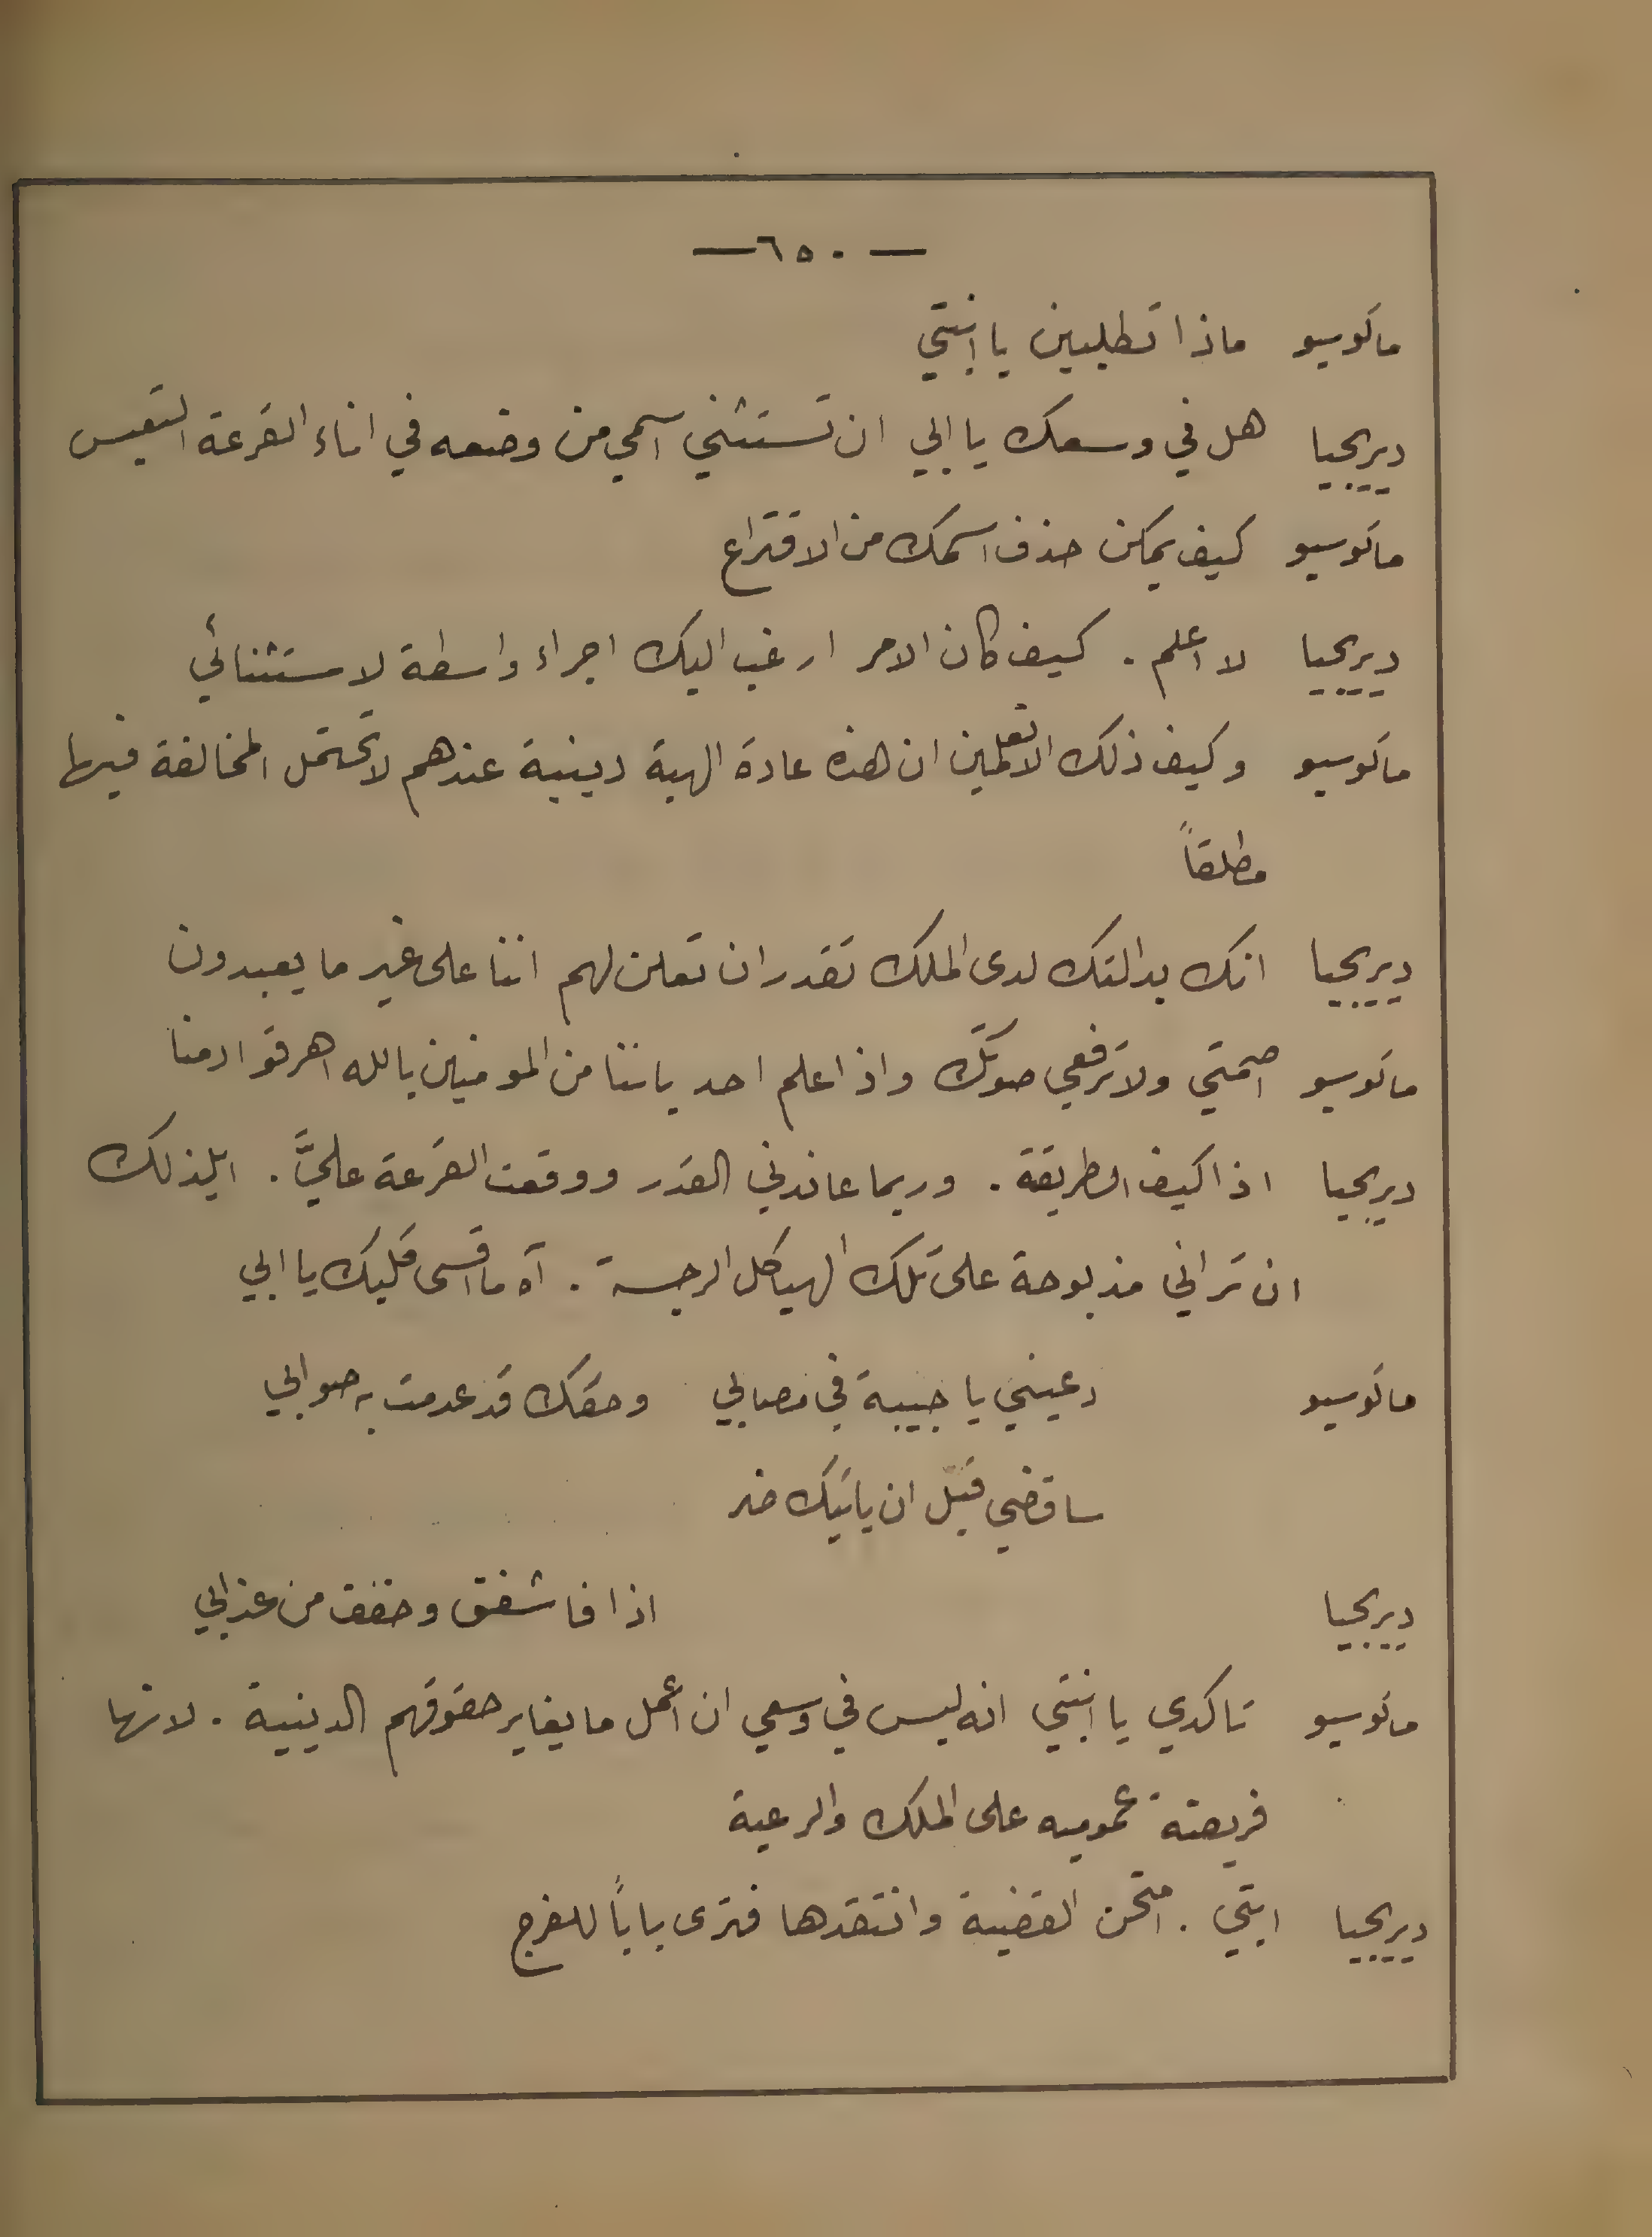 — ٦٥٠ —
ماتوسيو ماذا تطلبين يا ابنتي
ديريجيا هل في وسعك يا ابي ان تستثني اسمي من وضعه في اناء القرعة التعيس
ماتوسيو كيف يمكن حذف اسمك من الاقتراع
ديريجيا لا اعلم . كيف كان الامر ارغب اليك اجراء واسطة لاستثنائي
ماتوسيو وكيف ذلك الا تعلمين ان هذه عادة الهية دينية عندهم لا تحتمل المخالفة فيها
مطلقاً
ديريجيا انك بدالتك لدى الملك تقدر ان تعلن لهم اننا على غير ما يعبدون
ماتوسيو اصمتي ولا ترفعي صوتك واذا علم احد باننا من المومنين بالله اهرقوا دمنا
ديريجيا اذا كيف الطريقة . وربما عاندني القدر ووقعت القرعة عليَّ . ايلذ لك
ان تراني مذبوحة على تلك الهياكل الرجسة . آه ما اقسى قلبك يا ابي
ماتوسيو دعيني يا حبيبة في مصابي وحقك قد عدمت به صوابي
ساقضي قبل ان ياتيك ضر
ديريجيا اذا فاشفق وخفف من عذابي
ماتوسيو تاكدي يا ابنتي انه ليس في وسعي ان اعمل ما يغاير حقوقهم الدينية . لانها
فريضة عموميه على الملك والرعية
ديريجيا ابتي . امتحن القضية وانتقدها فترى باباً للفرج